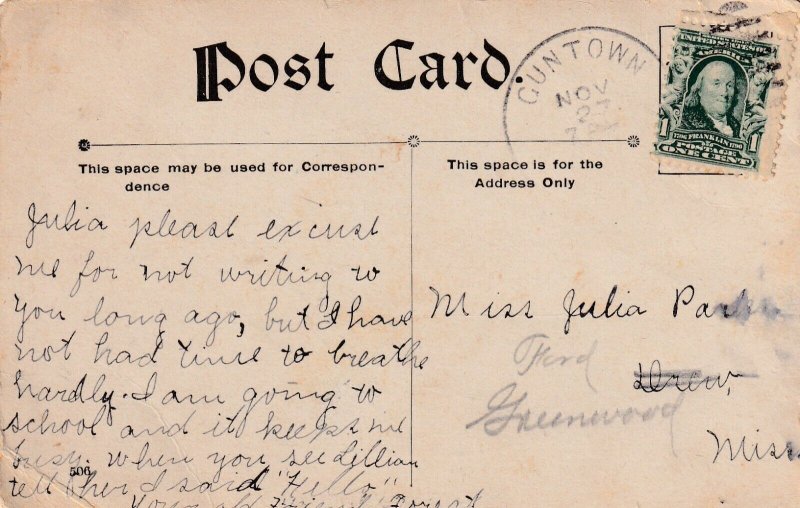 Post Card.
GUNTOWN
NOV
27
7 A
UNITED STATES OF
AMERICA
1706 FRANKLIN 1790
1 1
POSTAGE
ONE CENT
This space may be used for Correspon-
dence
This space is for the
Address Only
Julia please excuse
me for not writing to
you long ago, but I have
not had time to breathe
hardly. I am going to
school and it keeps me
busy. when you see Lillian
tell her I said "Hello"
Your old Friend Forest
506
Miss Julia
Drew,
Miss
Ford
Greenwood